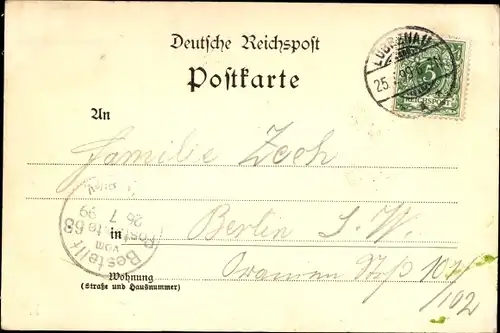 Deutsche Reichspost
Postkarte
LÜBBENAU
25. 7. 99
5
REICHSPOST
An
Familie Zech
in Berlin S. W.
Oranien Str. 101/102
Wohnung
(Straße und Hausnummer)
Bestellt
vom
Postamte 68
26 7 99